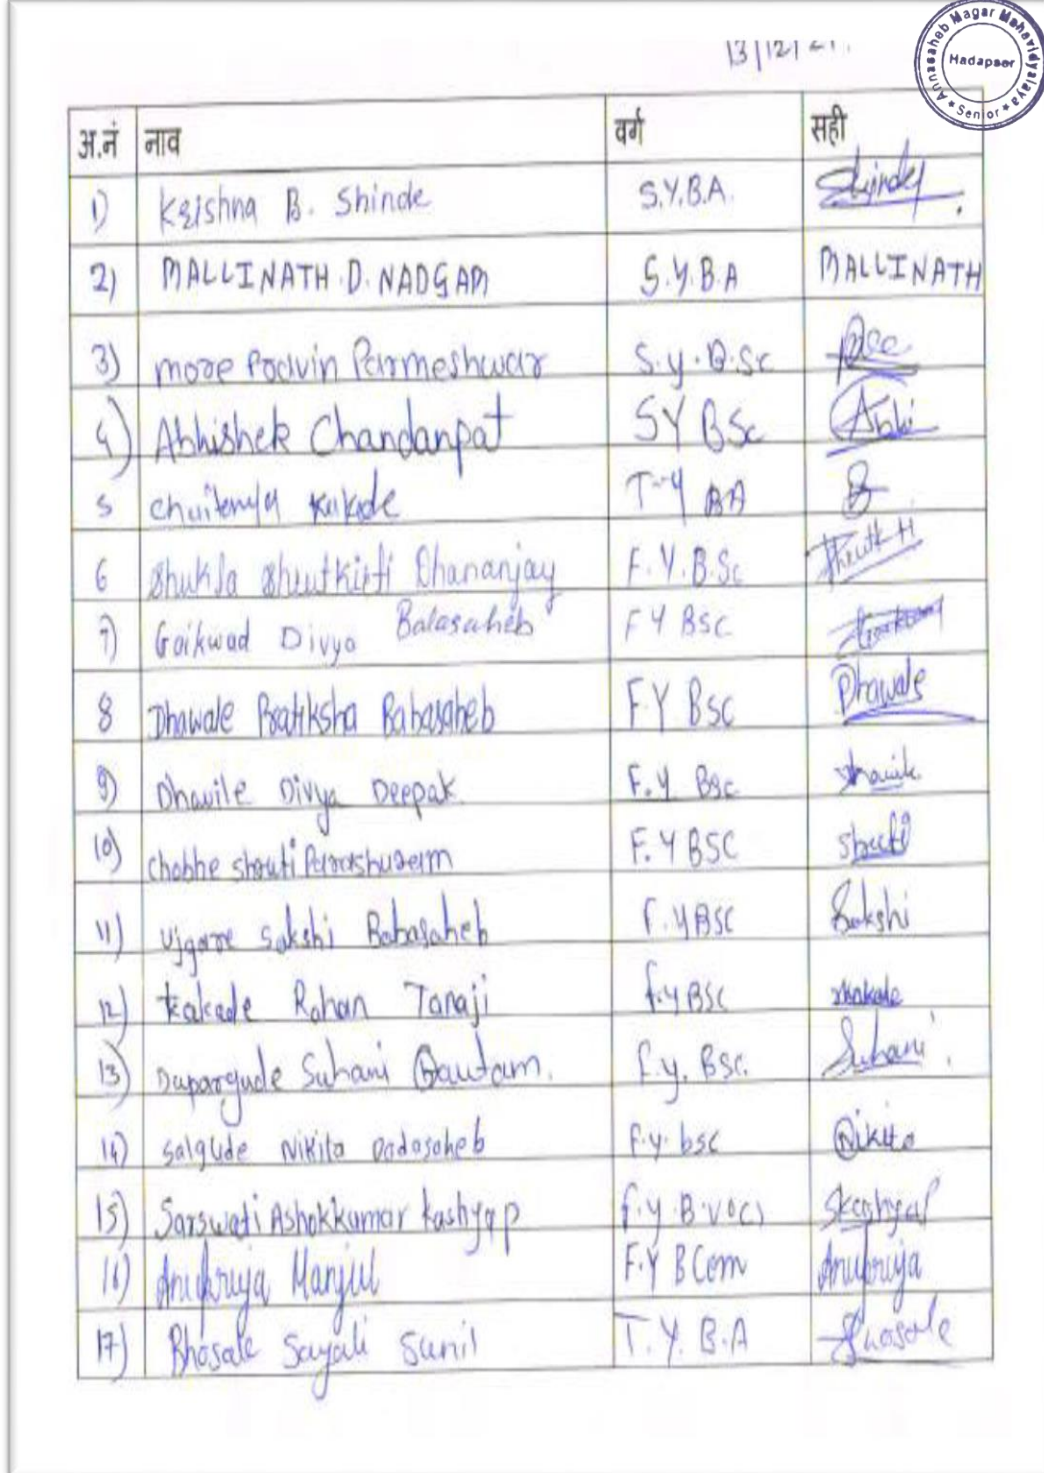 13/12/21.
Annasaheb Magar Mahavidyalaya
Hadapsar
Senior
अ.नं नाव वर्ग सही
1) Krishna B. Shinde S.Y.B.A. Shinde
2) MALLINATH.D.NADGAM S.Y.B.A MALLINATH
3) more Pravin Parmeshwar S.y.B.Sc
4) Abhishek Chandanpat SY BSc Abhi
5 Chaitanya Kakade T-Y BA
6 Shukla Shrutkirti Dhananjay F.Y.B.Sc
7) Gaikwad Divya Balasaheb FY BSC
8 Dhawale Pratiksha Babasaheb F.Y BSC Dhawale
9) Dhavile Divya Deepak. F.Y BSC
10) chobhe shruti Parashuram F.Y BSC shruti
11) Ujgare Sakshi Babasaheb F.Y BSC Sakshi
12) kakade Rohan Tanaji f.y BSC rkakade
13) Dupargude Suhani Gautam. f.y. BSC. Suhani
14) salgude Nikita Dadasaheb F.y. bsc Nikita
15) Sarswati Ashokkumar kashyap f.y B.voc) Skashyap
16) Anupriya Manjul F.Y BCom Anupriya
17) Bhosale Sayali Sunil T.Y.B.A Bhosale